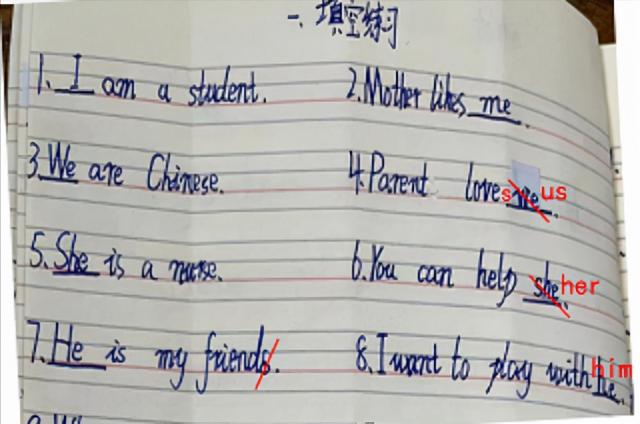 一、填空练习
1. I am a student. 2. Mother likes me.
3. We are Chinese. 4. Parent loves us.
5. She is a nurse. 6. You can help she her.
7. He is my friends. 8. I want to play with he. him